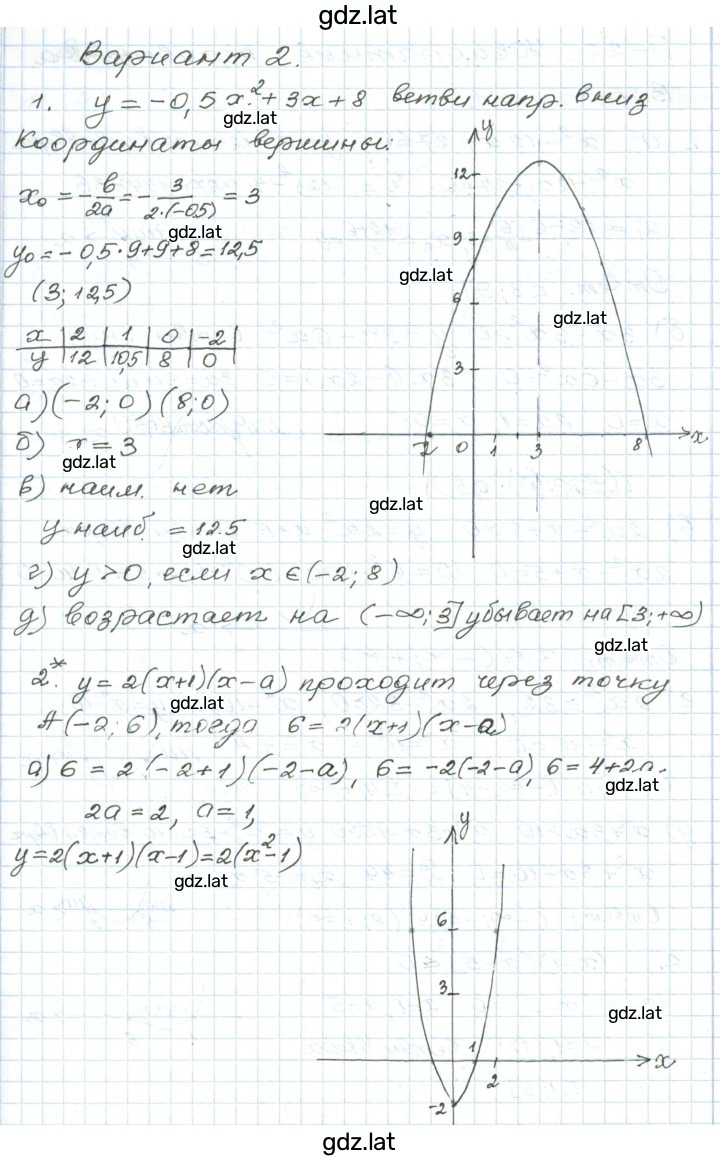 gdz.lat
Вариант 2.
1. y = -0,5x² + 3x + 8 ветви напр. вниз
gdz.lat
Координаты вершины:
x₀ = -в/2a = -3/2·(-0,5) = 3
gdz.lat
y₀ = -0,5·9+9+8=12,5
(3; 12,5)
x | 2 | 1 | 0 | -2 |
y | 12 | 10,5 | 8 | 0 |
а) (-2; 0) (8; 0)
б) x = 3
gdz.lat
в) наим. нет
y наиб. = 12.5
gdz.lat
y
12
9
gdz.lat
6
gdz.lat
3
-2 0 1 3 8 x
gdz.lat
г) y > 0, если x ∈ (-2; 8)
д) возрастает на (-∞; 3] убывает на [3; +∞)
gdz.lat
2*. y = 2(x+1)(x-a) проходит через точку
gdz.lat
A(-2; 6), тогда 6 = 2(x+1)(x-a)
а) 6 = 2(-2+1)(-2-a), 6 = -2(-2-a), 6 = 4+2a.
gdz.lat
2a = 2, a = 1,
y=2(x+1)(x-1)=2(x²-1)
gdz.lat
y
6
3
gdz.lat
1 2 x
-2
gdz.lat